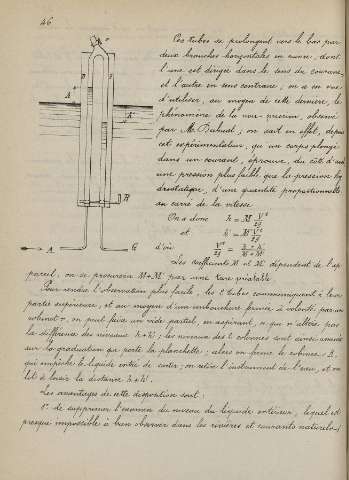 46
Ces tubes se prolongent vers le bas par
deux branches horizontales en cuivre, dont
l'une est dirigée dans le sens du courant,
et l'autre en sens contraire; on a en vue
d'utiliser, au moyen de cette dernière, le
phénomène de la non-pression, observé
par Mr. Dubuat; on sait en effet, depuis
cet expérimentateur, qu'un corps plongé
dans un courant, éprouve, du côté d'aval
une pression plus faible que la pression hy
drostatique, d'une quantité proportionnelle
au carré de la vitesse
On a donc h = M V²/2g
et h' = M' V²/2g
d'où V²/2g = h + h' / M + M'
Les coefficients M et M' dépendent de l'ap
pareil, on se procurera M+M' par une tare préalable.
Pour rendre l'observation plus facile, les 2 tubes communiquent à leur
partie supérieure, et au moyen d'une embouchure fermée à volonté par un
robinet r, on peut faire un vide partiel, en aspirant, ce qui n'altère pas
la différence des niveaux h+h'; les niveaux des 2 colonnes sont ainsi amenés
sur la graduation que porte la planchette; alors on ferme le robinet R,
qui empêche le liquide entré de sortir; on retire l'instrument de l'eau, et on
lit à loisir la distance h+h'.
Les avantages de cette disposition sont:
1° de supprimer l'examen du niveau du liquide extérieur, lequel est
presque impossible à bien observer dans les rivières et courants naturels
A
C
R